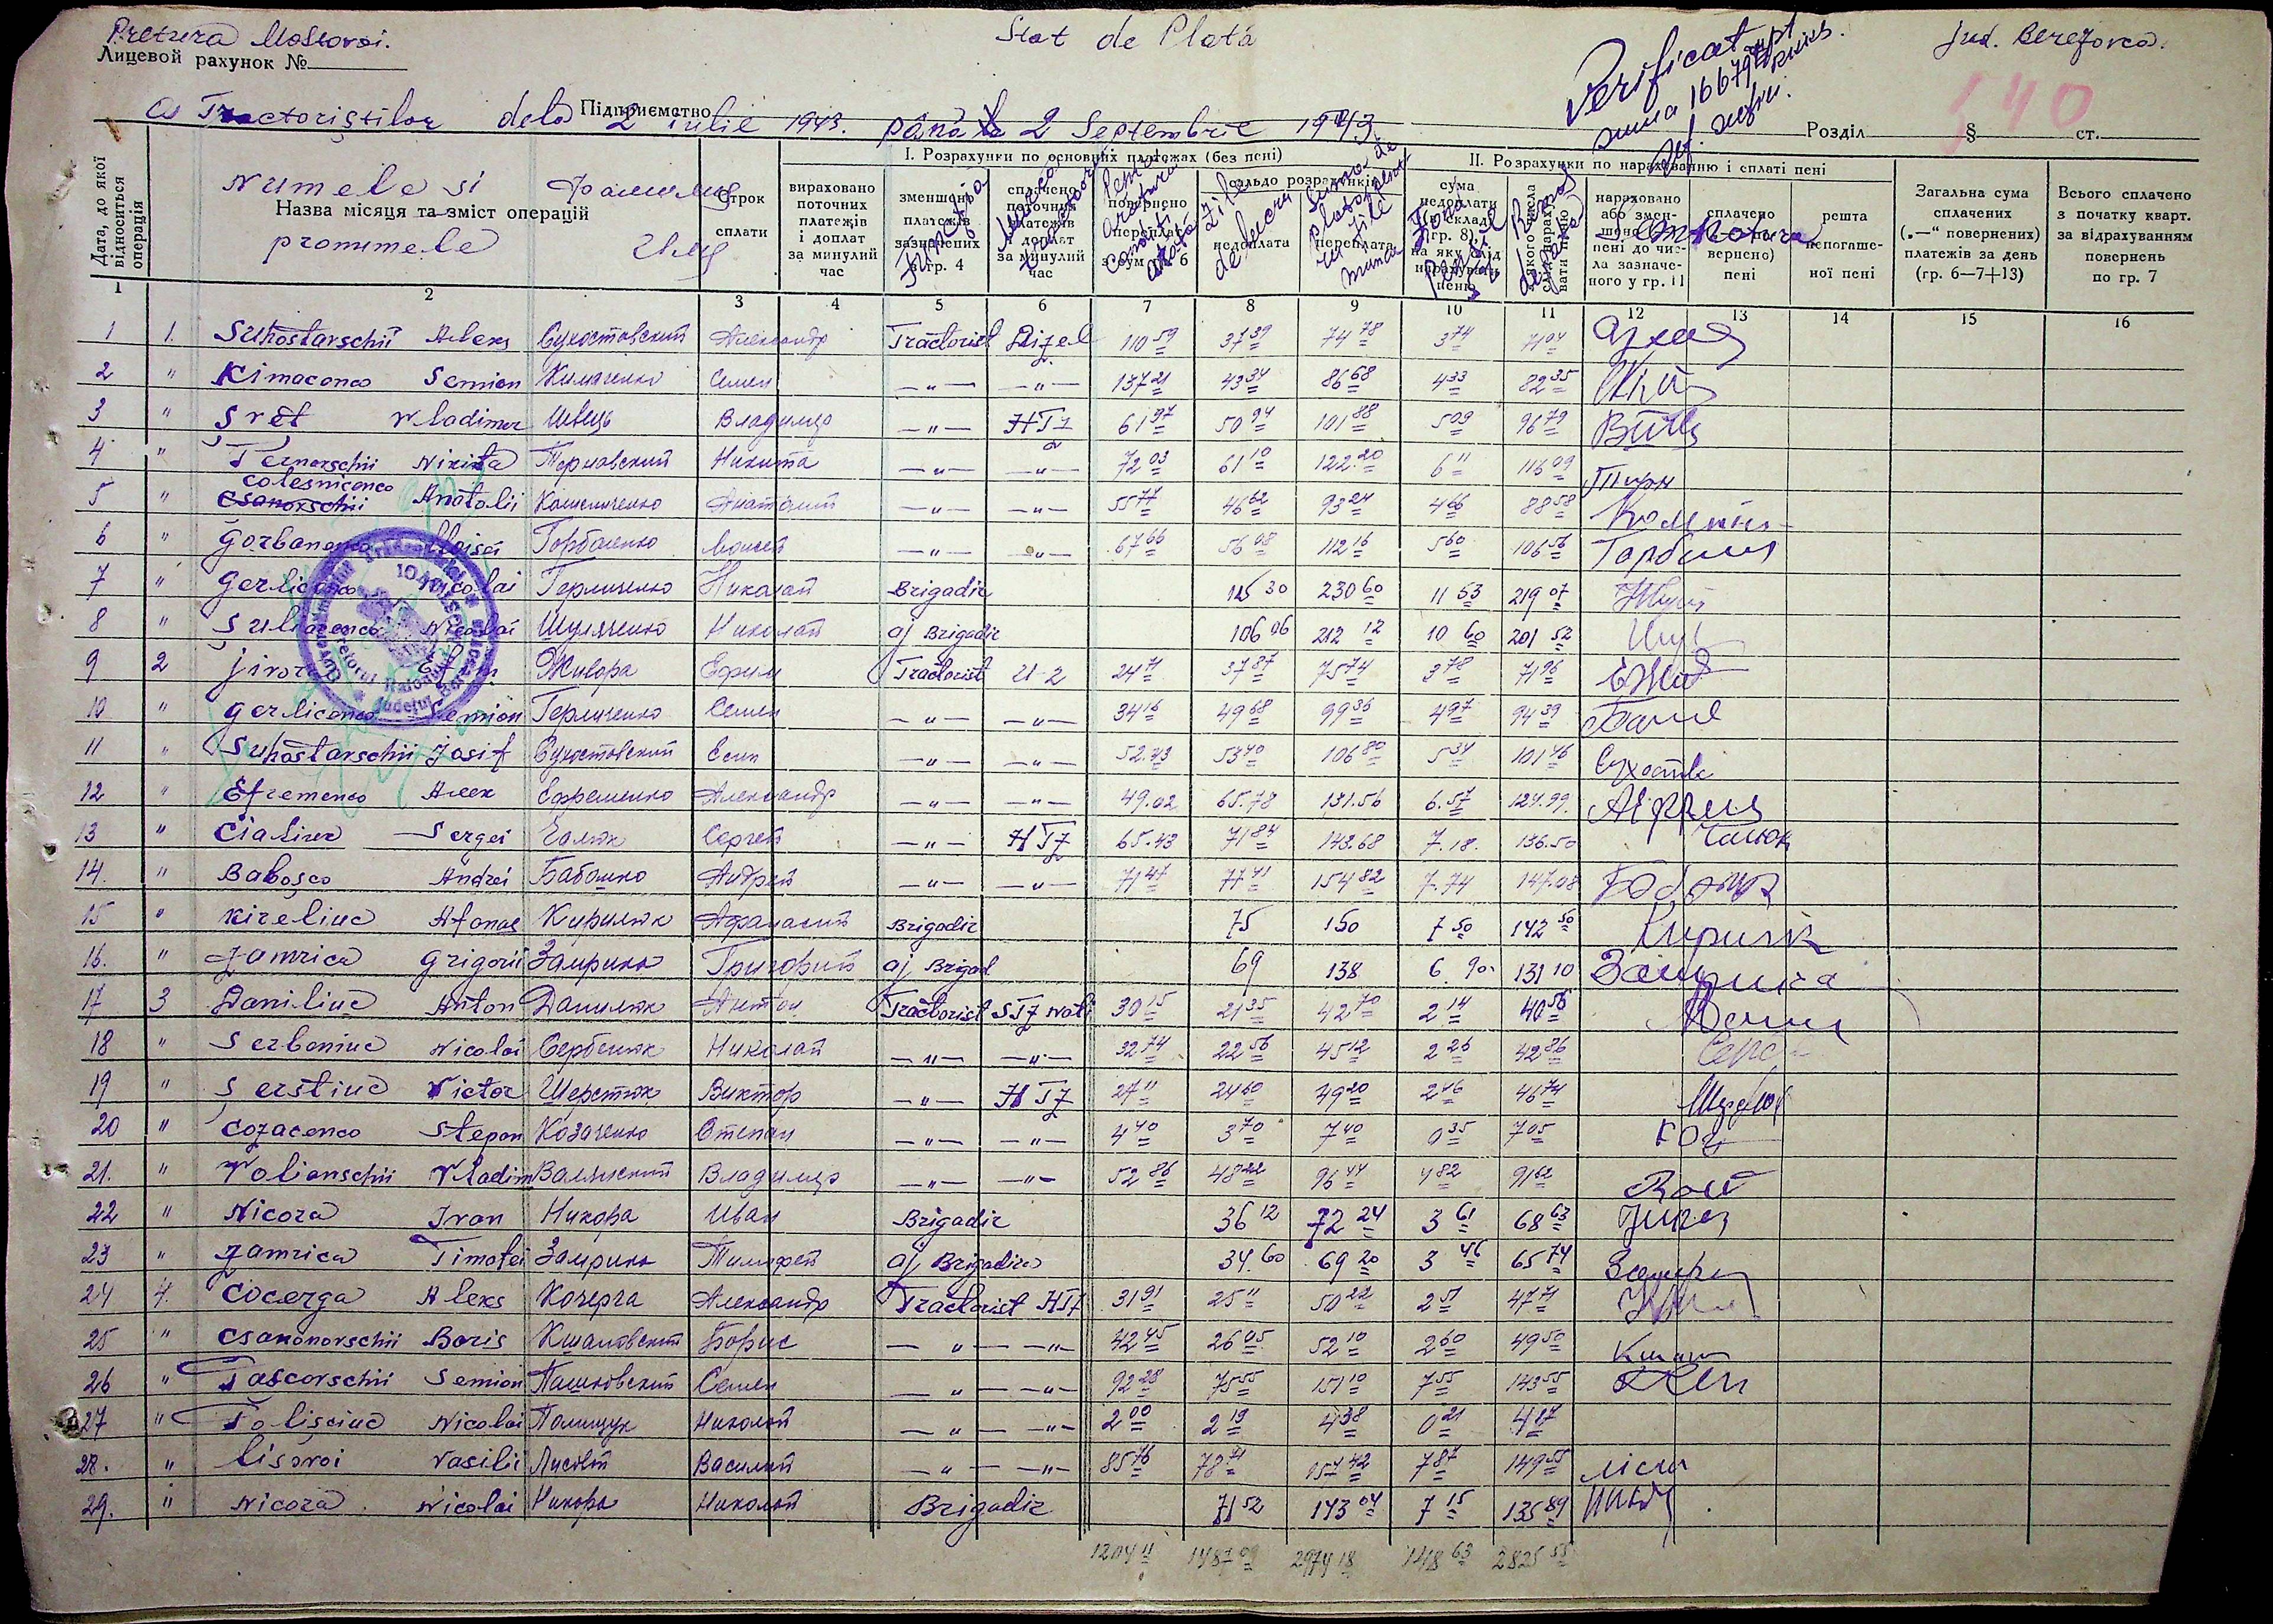 Pretura Mostovoi.
Stat de Plată
Jud. Berezovca.
Лицевой рахунок №
Verificat
suma 16679
540
a Tractoriștilor dela 2 iulie 1943. până la 2 Septembrie 1943
Підприємство
Розділ § ст.
Дата, до якої відноситься операція
Numele si Фамилия
Назва місяця та зміст операцій
pronumele Имя
Строк сплати
I. Розрахунки по основних платежах (без пені)
вираховано поточних платежів і доплат за минулий час
зменшено платежів зазначених в гр. 4
Funcția
сплачено поточних платежів і доплат за минулий час
Marca tractorului
повернено переплат
сальдо розрахунків
недоплата
переплата
Zile de lucru
II. Розрахунки по нарахуванню і сплаті пені
сума недоплати
Rămas de plată
нараховано або зменшено пені до числа зазначеного у гр. 11
сплачено пені
решта непогашеної пені
Загальна сума сплачених („—“ повернених) платежів за день (гр. 6—7+13)
Всього сплачено з початку кварт. за відрахуванням повернень по гр. 7
1 2 3 4 5 6 7 8 9 10 11 12 13 14 15 16
1 1. Suhostavschii Aleks Сухоставский Александр Tractorist Dizel 110 59 37 39 74 78 3 74 71 04
2 " Kimacenco Semion Кимаченко Семен —"— —"— 137 21 43 34 86 68 4 33 82 35
3 " Șveț Vladimir Швець Владимир —"— HTZ 61 97 50 94 101 88 5 09 96 79
4 " Ternovschii Nikita Терновский Никита —"— —"— 72 03 61 10 122.20 6 11 116 09
5 " Colesnicenco Anatolii Колесниченко Анатолий —"— —"— 55 77 46 62 93 24 4 66 88 58
6 " Gorbanenco Moisei Горбаненко Моисей —"— —"— 67 66 56 08 112 16 5 60 106 56
7 " Gerlicenco Nicolai Герличенко Николай Brigadir 115 30 230 60 11 53 219 07
8 " Șuliacenco Nicolai Шуляченко Николай aj Brigadir 106 06 212 12 10 60 201 52
9 2 Jivora Efim Живора Ефим Tractorist U-2 24 71 37 87 75 74 3 78 71 96
10 " Gerlicenco Semion Герличенко Семен —"— —"— 34 16 49 68 99 36 4 97 94 39
11 " Suhostavschii Josif Сухоставский Есип —"— —"— 52.43 53 40 106 80 5 34 101 46
12 " Efremenco Aлек Ефременко Александр —"— —"— 49.02 65.78 131.56 6.57 124.99
13 " Cialiuc Sergei Чалюк Сергей —"— HTZ 65.43 71 84 143.68 7.18. 136.50 Чалюк
14. " Baboșco Andrei Бабошко Андрей —"— —"— 71 47 77 41 154 82 7.74 147.08
15 " Kireliuc Afonas Кирилюк Афанасий Brigadir 75 150 7 50 142 50 Кирилюк
16. " Zamrica Grigorii Замрика Григорий aj Brigad 69 138 6 90 131 10 Замрика
17 3 Daniliuc Anton Данилюк Антон Tractorist STZ nati 30 15 21 35 42 70 2 14 40 56
18 " Serbeniuc Nicolai Сербенюк Николай —"— —"— 32 74 22 56 45 12 2 26 42 86
19 " Șerstiuc Victor Шерстюк Виктор —"— HTZ 27 11 24 60 49 20 2 46 46 74
20 " Cozacenco Stepan Козаченко Степан —"— —"— 4 40 3 70 7 40 0 35 7 05 Коз
21. " Volianschii Vladim Валянский Владимир —"— —"— 52 86 48 22 96 44 4 82 91 62
22 " Nicora Ivan Никора Иван Brigadir 36 12 72 24 3 61 68 63
23 " Zamrica Timofei Замрика Тимофей aj Brigadir 34.60 69 20 3 46 65 74
24 4. Cocerga Aleks Кочерга Александр Tractorist HTZ 31 91 25 11 50 22 2 51 47 71
25 " Csanonovschii Boris Кшановский Борис —"— —"— 42 45 26 05 52 10 2 60 49 50
26 " Pascovschii Semion Пашковский Семен —"— —"— 92 28 75 55 151 10 7 55 143 55
27 " Polișciuc Nicolai Полищук Николай —"— —"— 2 00 2 19 4 38 0 21 4 17
28. " Lisovoi Vasilii Лисовой Василий —"— —"— 85 76 78 71 157 42 7 87 149 55
29. " Nicora Nicolai Никора Николай Brigadir 71 52 143 04 7 15 135 89
1204 11 1487 09 2974 18 148 63 2825 55